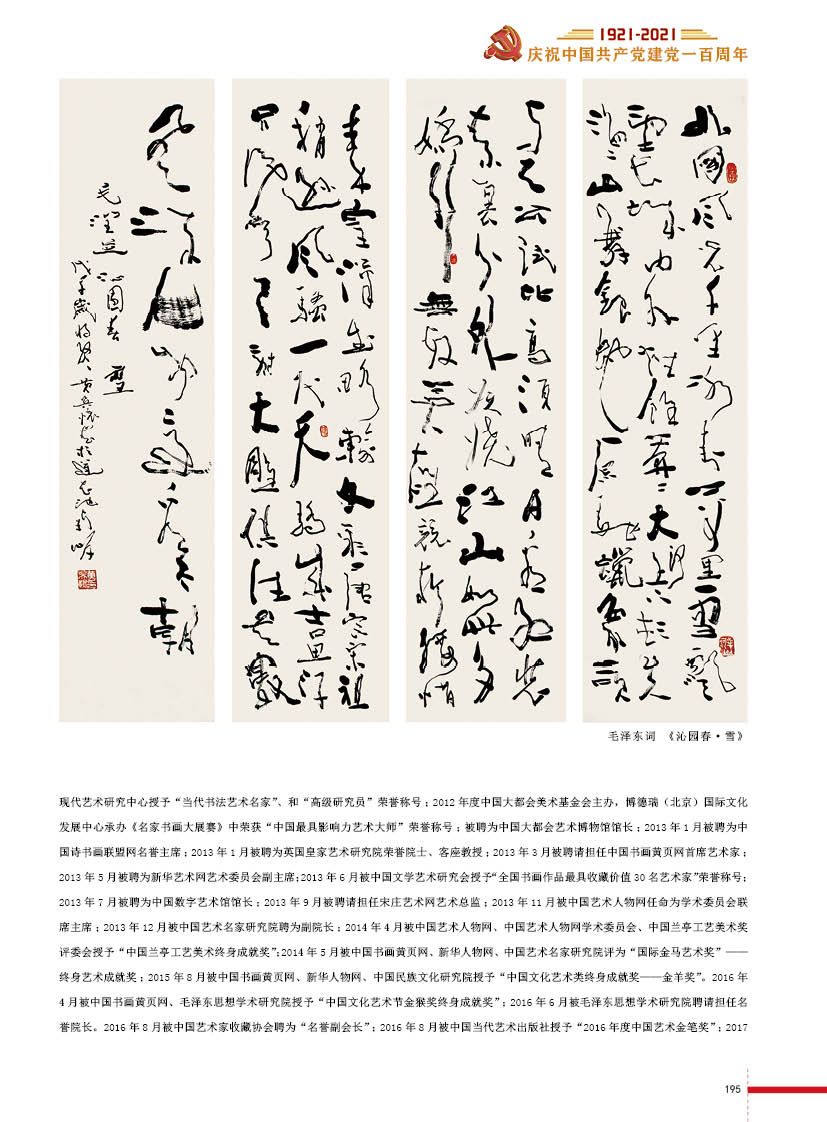 1921-2021
庆祝中国共产党建党一百周年
北國風光千里冰封万里雪飄
望长城内外惟餘莽〻大河上下顿失
滔〻山舞銀蛇原驰蠟象欲
与天公试比高須晴日看红装
素裹分外妖娆江山如此多
嬌引無数英雄競折腰惜
秦皇漢武略輸文采唐宗宋祖
稍遜風騷一代天驕成吉思汗
只识弯弓射大雕俱往矣數
風流人物还看今朝
毛澤东沁園春雪
戊子歲
毛泽东词 《沁园春·雪》
现代艺术研究中心授予“当代书法艺术名家”、和“高级研究员”荣誉称号；2012年度中国大都会美术基金会主办，博德瑞（北京）国际文化
发展中心承办《名家书画大展赛》中荣获“中国最具影响力艺术大师”荣誉称号；被聘为中国大都会艺术博物馆馆长；2013年1月被聘为中
国诗书画联盟网名誉主席；2013年1月被聘为英国皇家艺术研究院荣誉院士、客座教授；2013年3月被聘请担任中国书画黄页网首席艺术家；
2013年5月被聘为新华艺术网艺术委员会副主席；2013年6月被中国文学艺术研究会授予“全国书画作品最具收藏价值30名艺术家”荣誉称号；
2013年7月被聘为中国数字艺术馆馆长；2013年9月被聘请担任宋庄艺术网艺术总监；2013年11月被中国艺术人物网任命为学术委员会联
席主席；2013年12月被中国艺术名家研究院聘为副院长；2014年4月被中国艺术人物网、中国艺术人物网学术委员会、中国兰亭工艺美术奖
评委会授予“中国兰亭工艺美术终身成就奖”；2014年5月被中国书画黄页网、新华人物网、中国艺术名家研究院评为“国际金马艺术奖”——
终身艺术成就奖；2015年8月被中国书画黄页网、新华人物网、中国民族文化研究院授予“中国文化艺术类终身成就奖——金羊奖”。2016年
4月被中国书画黄页网、毛泽东思想学术研究院授予“中国文化艺术节金猴奖终身成就奖”；2016年6月被毛泽东思想学术研究院聘请担任名
誉院长。2016年8月被中国艺术家收藏协会聘为“名誉副会长”；2016年8月被中国当代艺术出版社授予“2016年度中国艺术金笔奖”；2017
195